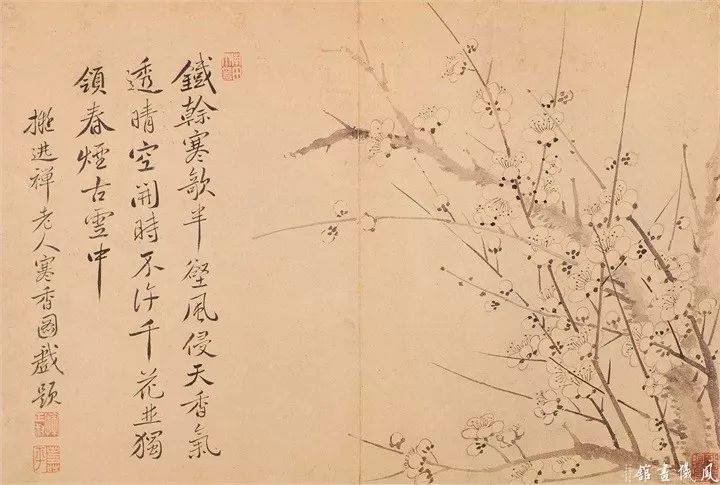 鐵榦寒欹半壑風侵天香氣
透晴空開時不許千花並獨
領春煙古雪中
擬進禪老人寒香圖戲題
鳳儀畫館